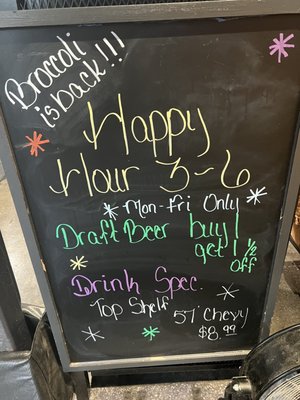 Broccoli
is back!!!
Happy
Hour 3-6
Mon-Fri Only
Draft Beer buy 1
get 1 1/2
off
Drink Spec.
Top Shelf
57' Chevy
$8.99